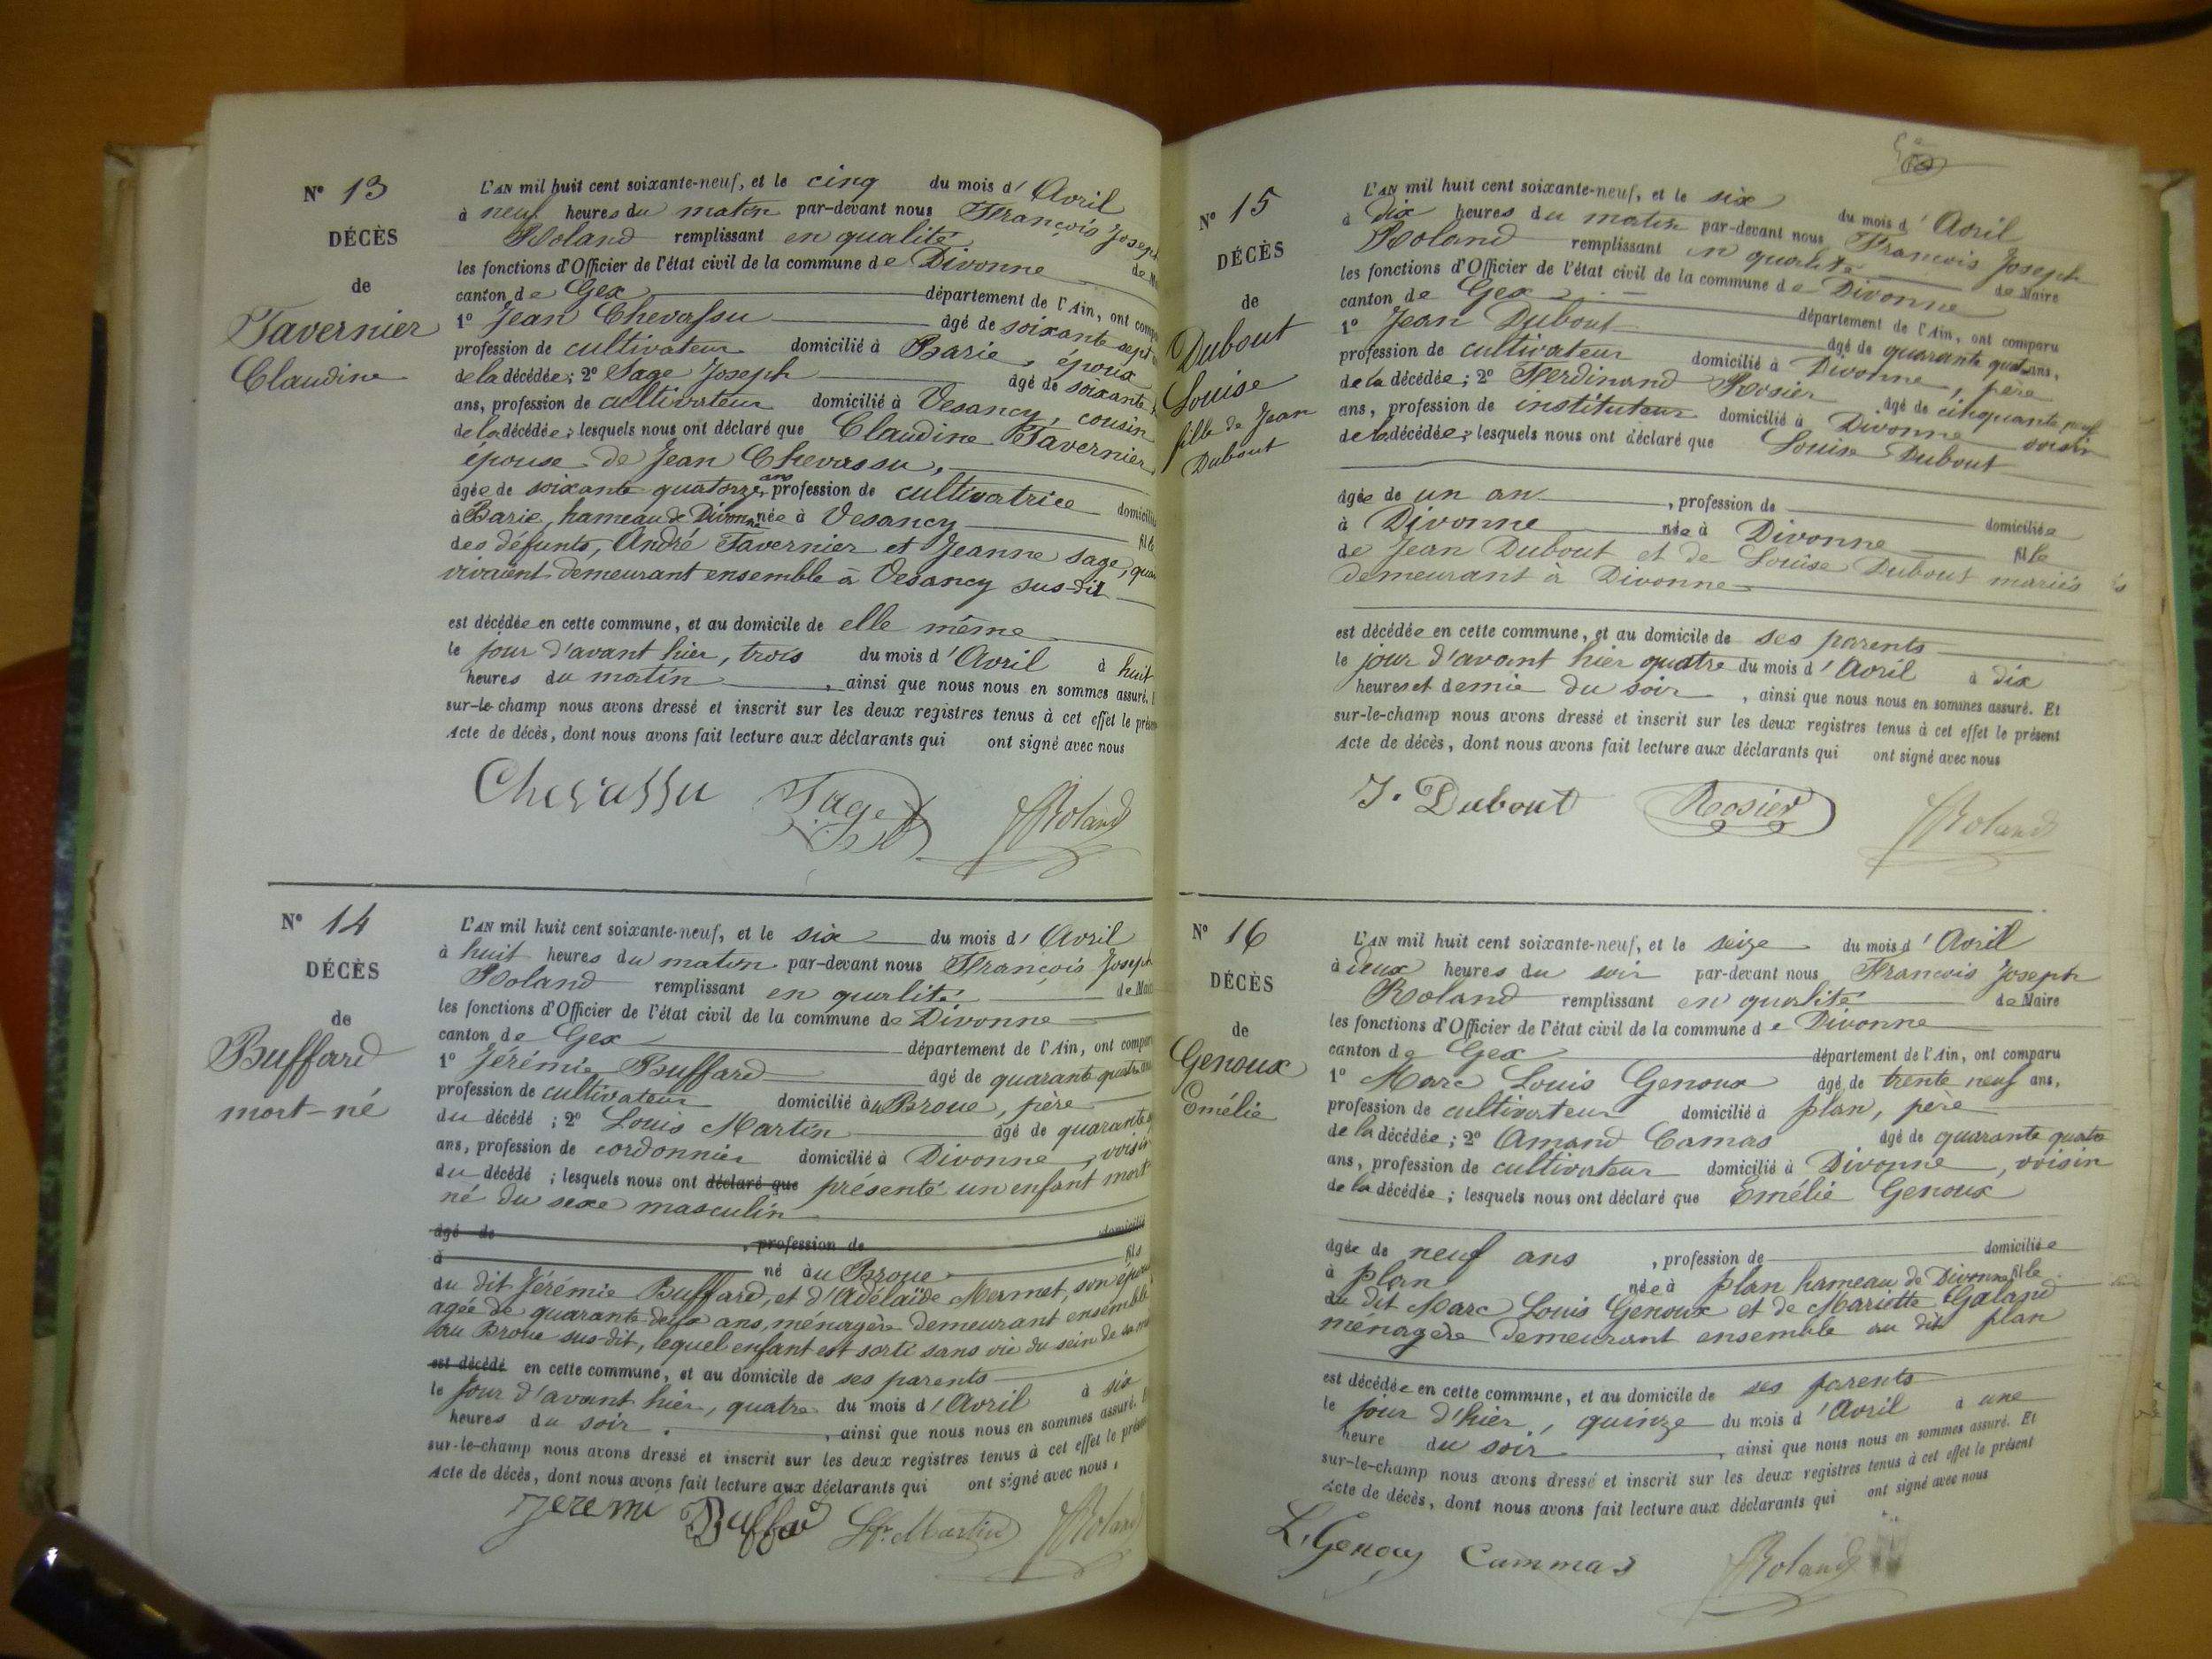 N° 13
DÉCÈS
de
Tavernier
Claudine
L'AN mil huit cent soixante-neuf, et le cinq du mois d'Avril
à neuf heures du matin par-devant nous François Joseph
Roland remplissant en qualité de
les fonctions d'Officier de l'état civil de la commune de Divonne
canton de Gex département de l'Ain, ont
1° Jean Chevassu âgé de soixante sept
profession de cultivateur domicilié à Barie, époux
de la décédée; 2° Sage Joseph âgé de soixante
ans, profession de cultivateur domicilié à Vesancy, cousin
de la décédée; lesquels nous ont déclaré que Claudine Tavernier
épouse de Jean Chevassu,
âgée de soixante quatorze ans, profession de cultivatrice
à Barie, hameau de Divonne née à Vesancy
des défunts, André Tavernier et Jeanne Sage,
vivaient demeurant ensemble à Vesancy sus-dit
est décédée en cette commune, et au domicile de elle même
le jour d'avant hier, trois du mois d'Avril à huit
heures du matin, ainsi que nous nous en sommes assuré.
sur-le-champ nous avons dressé et inscrit sur les deux registres tenus à cet effet le
Acte de décès, dont nous avons fait lecture aux déclarants qui ont signé avec nous
Chevassu Sage J Roland
N° 14
DÉCÈS
de
Buffard
mort-né
L'AN mil huit cent soixante-neuf, et le six du mois d'Avril
à huit heures du matin par-devant nous François Joseph
Roland remplissant en qualité de
les fonctions d'Officier de l'état civil de la commune de Divonne
canton de Gex département de l'Ain, ont
1° Jérémie Buffard âgé de quarante quatre
profession de cultivateur domicilié au Broue, père
du décédé; 2° Louis Martin âgé de quarante
ans, profession de cordonnier domicilié à Divonne, voisin
du décédé; lesquels nous ont déclaré que présenté un enfant mort
né du sexe masculin
âgé de, profession de domicilié
à né au Broue fils
du dit Jérémie Buffard, et d'Adélaïde Mermet, son
agée de quarante deux ans, ménagère demeurant ensemble
au Broue sus-dit, lequel enfant est sorti sans vie du sein de sa
est décédé en cette commune, et au domicile de ses parents
le jour d'avant hier, quatre du mois d'Avril à six
heures du soir, ainsi que nous nous en sommes assuré.
sur-le-champ nous avons dressé et inscrit sur les deux registres tenus à cet effet le
Acte de décès, dont nous avons fait lecture aux déclarants qui ont signé avec nous,
Jeremi Buffar Martin J Roland
N° 15
DÉCÈS
de
Dubout
Louise
fille de Jean
Dubout
L'AN mil huit cent soixante-neuf, et le six du mois d'Avril
à dix heures du matin par-devant nous François Joseph
Roland remplissant en qualité de Maire
les fonctions d'Officier de l'état civil de la commune de Divonne
canton de Gex département de l'Ain, ont comparu
1° Jean Dubout âgé de quarante quat. ans,
profession de cultivateur domicilié à Divonne, père
de la décédée; 2° Ferdinand Rosier âgé de cinquante neuf
ans, profession de instituteur domicilié à Divonne voisin
de la décédée; lesquels nous ont déclaré que Louise Dubout
âgée de un an, profession de domiciliée
à Divonne née à Divonne fille
de Jean Dubout et de Louise Dubout mariés
demeurant à Divonne
est décédée en cette commune, et au domicile de ses parents
le jour d'avant hier quatre du mois d'Avril à dix
heures et demie du soir, ainsi que nous nous en sommes assuré. Et
sur-le-champ nous avons dressé et inscrit sur les deux registres tenus à cet effet le présent
Acte de décès, dont nous avons fait lecture aux déclarants qui ont signé avec nous
J. Dubout Rosier J Roland
N° 16
DÉCÈS
de
Genoux
Emélie
L'AN mil huit cent soixante-neuf, et le seize du mois d'Avril
à deux heures du soir par-devant nous François Joseph
Roland remplissant en qualité de Maire
les fonctions d'Officier de l'état civil de la commune de Divonne
canton de Gex département de l'Ain, ont comparu
1° Marc Louis Genoux âgé de trente neuf ans,
profession de cultivateur domicilié à plan, père
de la décédée; 2° Amand Camas âgé de quarante quatre
ans, profession de cultivateur domicilié à Divonne, voisin
de la décédée; lesquels nous ont déclaré que Emélie Genoux
âgée de neuf ans, profession de domiciliée
à plan née à plan hameau de Divonne fille
du dit Marc Louis Genoux et de Mariette Galand
ménagère demeurant ensemble au dit plan
est décédée en cette commune, et au domicile de ses parents
le jour d'hier, quinze du mois d'Avril à une
heure du soir, ainsi que nous nous en sommes assuré. Et
sur-le-champ nous avons dressé et inscrit sur les deux registres tenus à cet effet le présent
Acte de décès, dont nous avons fait lecture aux déclarants qui ont signé avec nous
L. Genoux Cammas J Roland